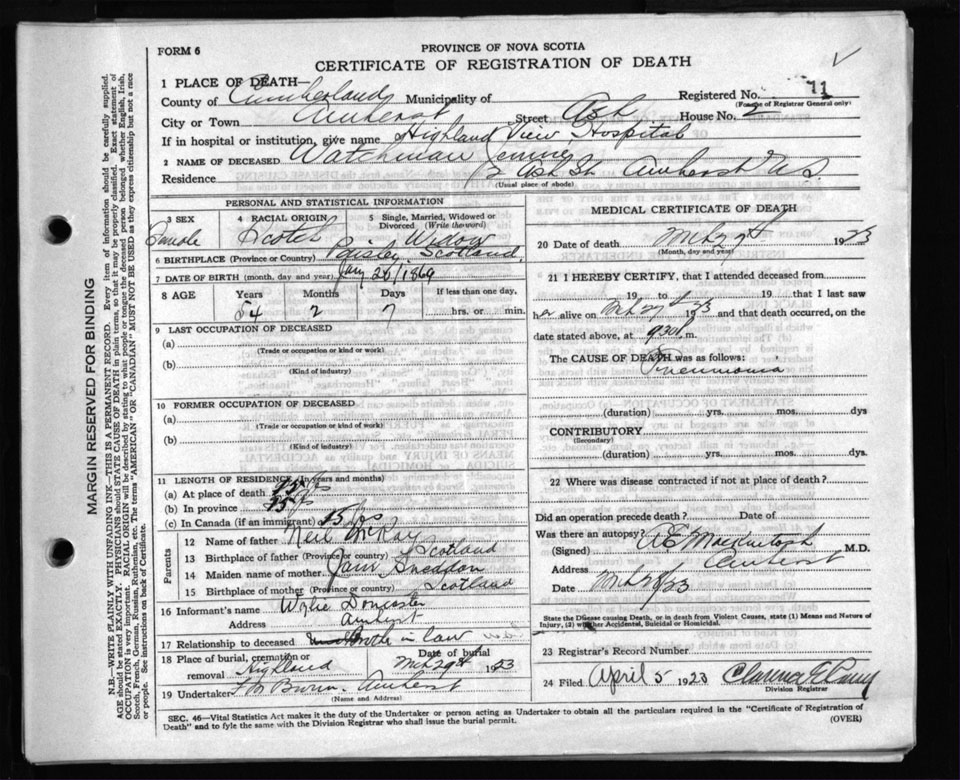 FORM 6
PROVINCE OF NOVA SCOTIA
CERTIFICATE OF REGISTRATION OF DEATH
1 PLACE OF DEATH—
Registered No. 11
(For use of Registrar General only)
County of Cumberland Municipality of
City or Town Amherst Street Ash House No. 2
If in hospital or institution, give name Highland View Hospital
2 NAME OF DECEASED Watchman Jennie
Residence 2 Ash St. Amherst N.S.
(Usual place of abode)
PERSONAL AND STATISTICAL INFORMATION
3 SEX Female
4 RACIAL ORIGIN Scotch
5 Single, Married, Widowed or Divorced (Write the word) Widow
6 BIRTHPLACE (Province or Country) Paisley Scotland.
7 DATE OF BIRTH (month, day and year) Jany 20/1869
8 AGE
Years Months Days If less than one day,
54 2 7 hrs. or min.
9 LAST OCCUPATION OF DECEASED
(a)
(Trade or occupation or kind or work)
(b)
(Kind of industry)
10 FORMER OCCUPATION OF DECEASED
(a)
(Trade or occupation or kind or work)
(b)
(Kind of industry)
11 LENGTH OF RESIDENCE (In years and months)
(a) At place of death 15 yrs
(b) In province 15 yrs
(c) In Canada (if an immigrant) 15 yrs
Parents
12 Name of father Neil McKay
13 Birthplace of father (Province or country) Scotland
14 Maiden name of mother Jane Sneddon
15 Birthplace of mother (Province or country) Scotland
16 Informant's name Wylie Doncaster
Address Amherst
17 Relationship to deceased in law
18 Place of burial, cremation or removal Highland
Date of burial Mch 29th 1923
19 Undertaker Amherst
(Name and Address)
MEDICAL CERTIFICATE OF DEATH
20 Date of death Mch 27th 1923
(Month, day and year)
21 I HEREBY CERTIFY, that I attended deceased from
19 to 19 that I last saw
her alive on Mch 27th 1923 and that death occurred, on the
date stated above, at 930
The CAUSE OF DEATH was as follows:
Pneumonia
(duration) yrs. mos. dys
CONTRIBUTORY
(Secondary)
(duration) yrs. mos. dys.
22 Where was disease contracted if not at place of death?
Did an operation precede death? Date of
Was there an autopsy?
(Signed) A E Mackintosh M.D.
Address Amherst
Date Mch 29/23
State the Disease causing Death, or in death from Violent Causes, state (1) Means and Nature of
Injury, (2) whether Accidental, Suicidal or Homicidal.
23 Registrar's Record Number
24 Filed April 5 1923 Clarence
Division Registrar
SEC. 46—Vital Statistics Act makes it the duty of the Undertaker or person acting as Undertaker to obtain all the particulars required in the "Certificate of Registration of
Death" and to fyle the same with the Division Registrar who shall issue the burial permit.
(OVER)
MARGIN RESERVED FOR BINDING
N.B.—WRITE PLAINLY WITH UNFADING INK—THIS IS A PERMANENT RECORD. Every item of information should be carefully supplied.
AGE should be stated EXACTLY. PHYSICIANS should STATE CAUSE OF DEATH in plain terms, so that it may be properly classified. Exact statement of
OCCUPATION is very important. RACIAL ORIGIN will be described by stating to what people or tongue the deceased person belonged whether English, Irish,
Scotch, French, German, Russian, Ruthenian, etc. The terms "AMERICAN" OR "CANADIAN" MUST NOT BE USED as they express citizenship but not a race
or people. See instructions on back of Certificate.